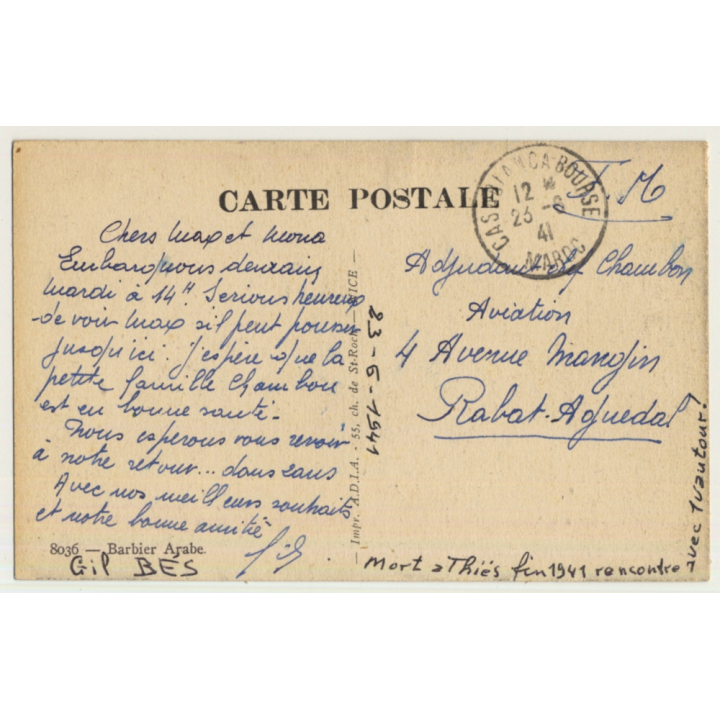 CARTE POSTALE
CASABLANCA BOURSE
12 H
23 - 6
41
MAROC
F. M
Chers Max et Mona
Embarquons demain
mardi à 14H. Serions heureux
de voir Max s'il peut pousser
jusqu'ici. J'espère que la
petite famille Chambon
est en bonne santé.
Nous esperons vous revoir
à notre retour... dans 2 ans
Avec nos meilleurs souhaits
et notre bonne amitié
Gil
8036 — Barbier Arabe.
Gil BES
— Impr. A.D.I.A. - 55, ch. de St-Roch - NICE —
23-6-1941
Adjudant Chef Chambon
Aviation
4 Avenue Mangin
Rabat-Aguedal
Mort à Thiès fin 1941 rencontre
avec 1 vautour!